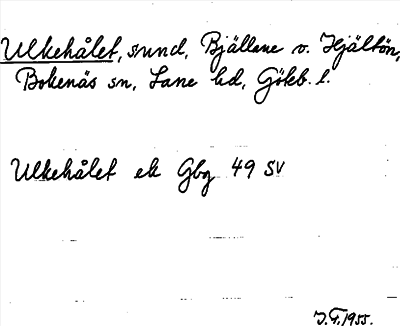 Ulkehålet, sund, Bjällene v. Hjältön,
Bokenäs sn, Lane hd, Göteb. l.
Ulkehålet ek Gbg 49 SV
J.F. 1955.